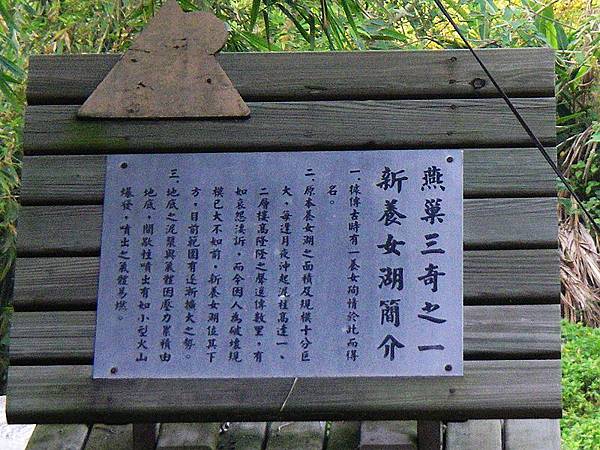 燕巢三奇之一
新養女湖簡介
一.據傳古時有一養女殉情於此而得
名。
二.原本養女湖之面積及規模十分巨
大，每逢月夜沖起泥柱高達一、
二層樓高隆隆之聲逕傳數里，有
如哀怨淒訴，而今因人為破壞規
模已大不如前，新養女湖位其下
方，目前範圍有逐漸擴大之勢。
三.地底之泥漿與氣體因壓力累積由
地底，間歇性噴出有如小型火山
爆發，噴出之氣體易燃。